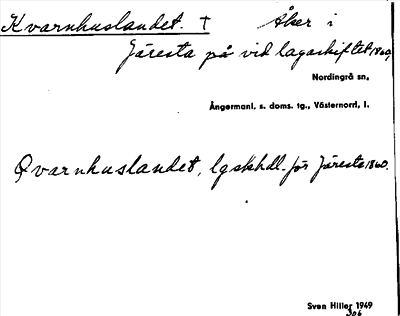 Kvarnhuslandet. † Åker i
Järesta på vid lagaskiftet 1860,
Nordingrå sn,
Ångermanl. s. doms. tg., Västernorrl. l.
Qvarnhuslandet, lgskhdl. för Järesta 1860.
Sven Hiller 1949
306